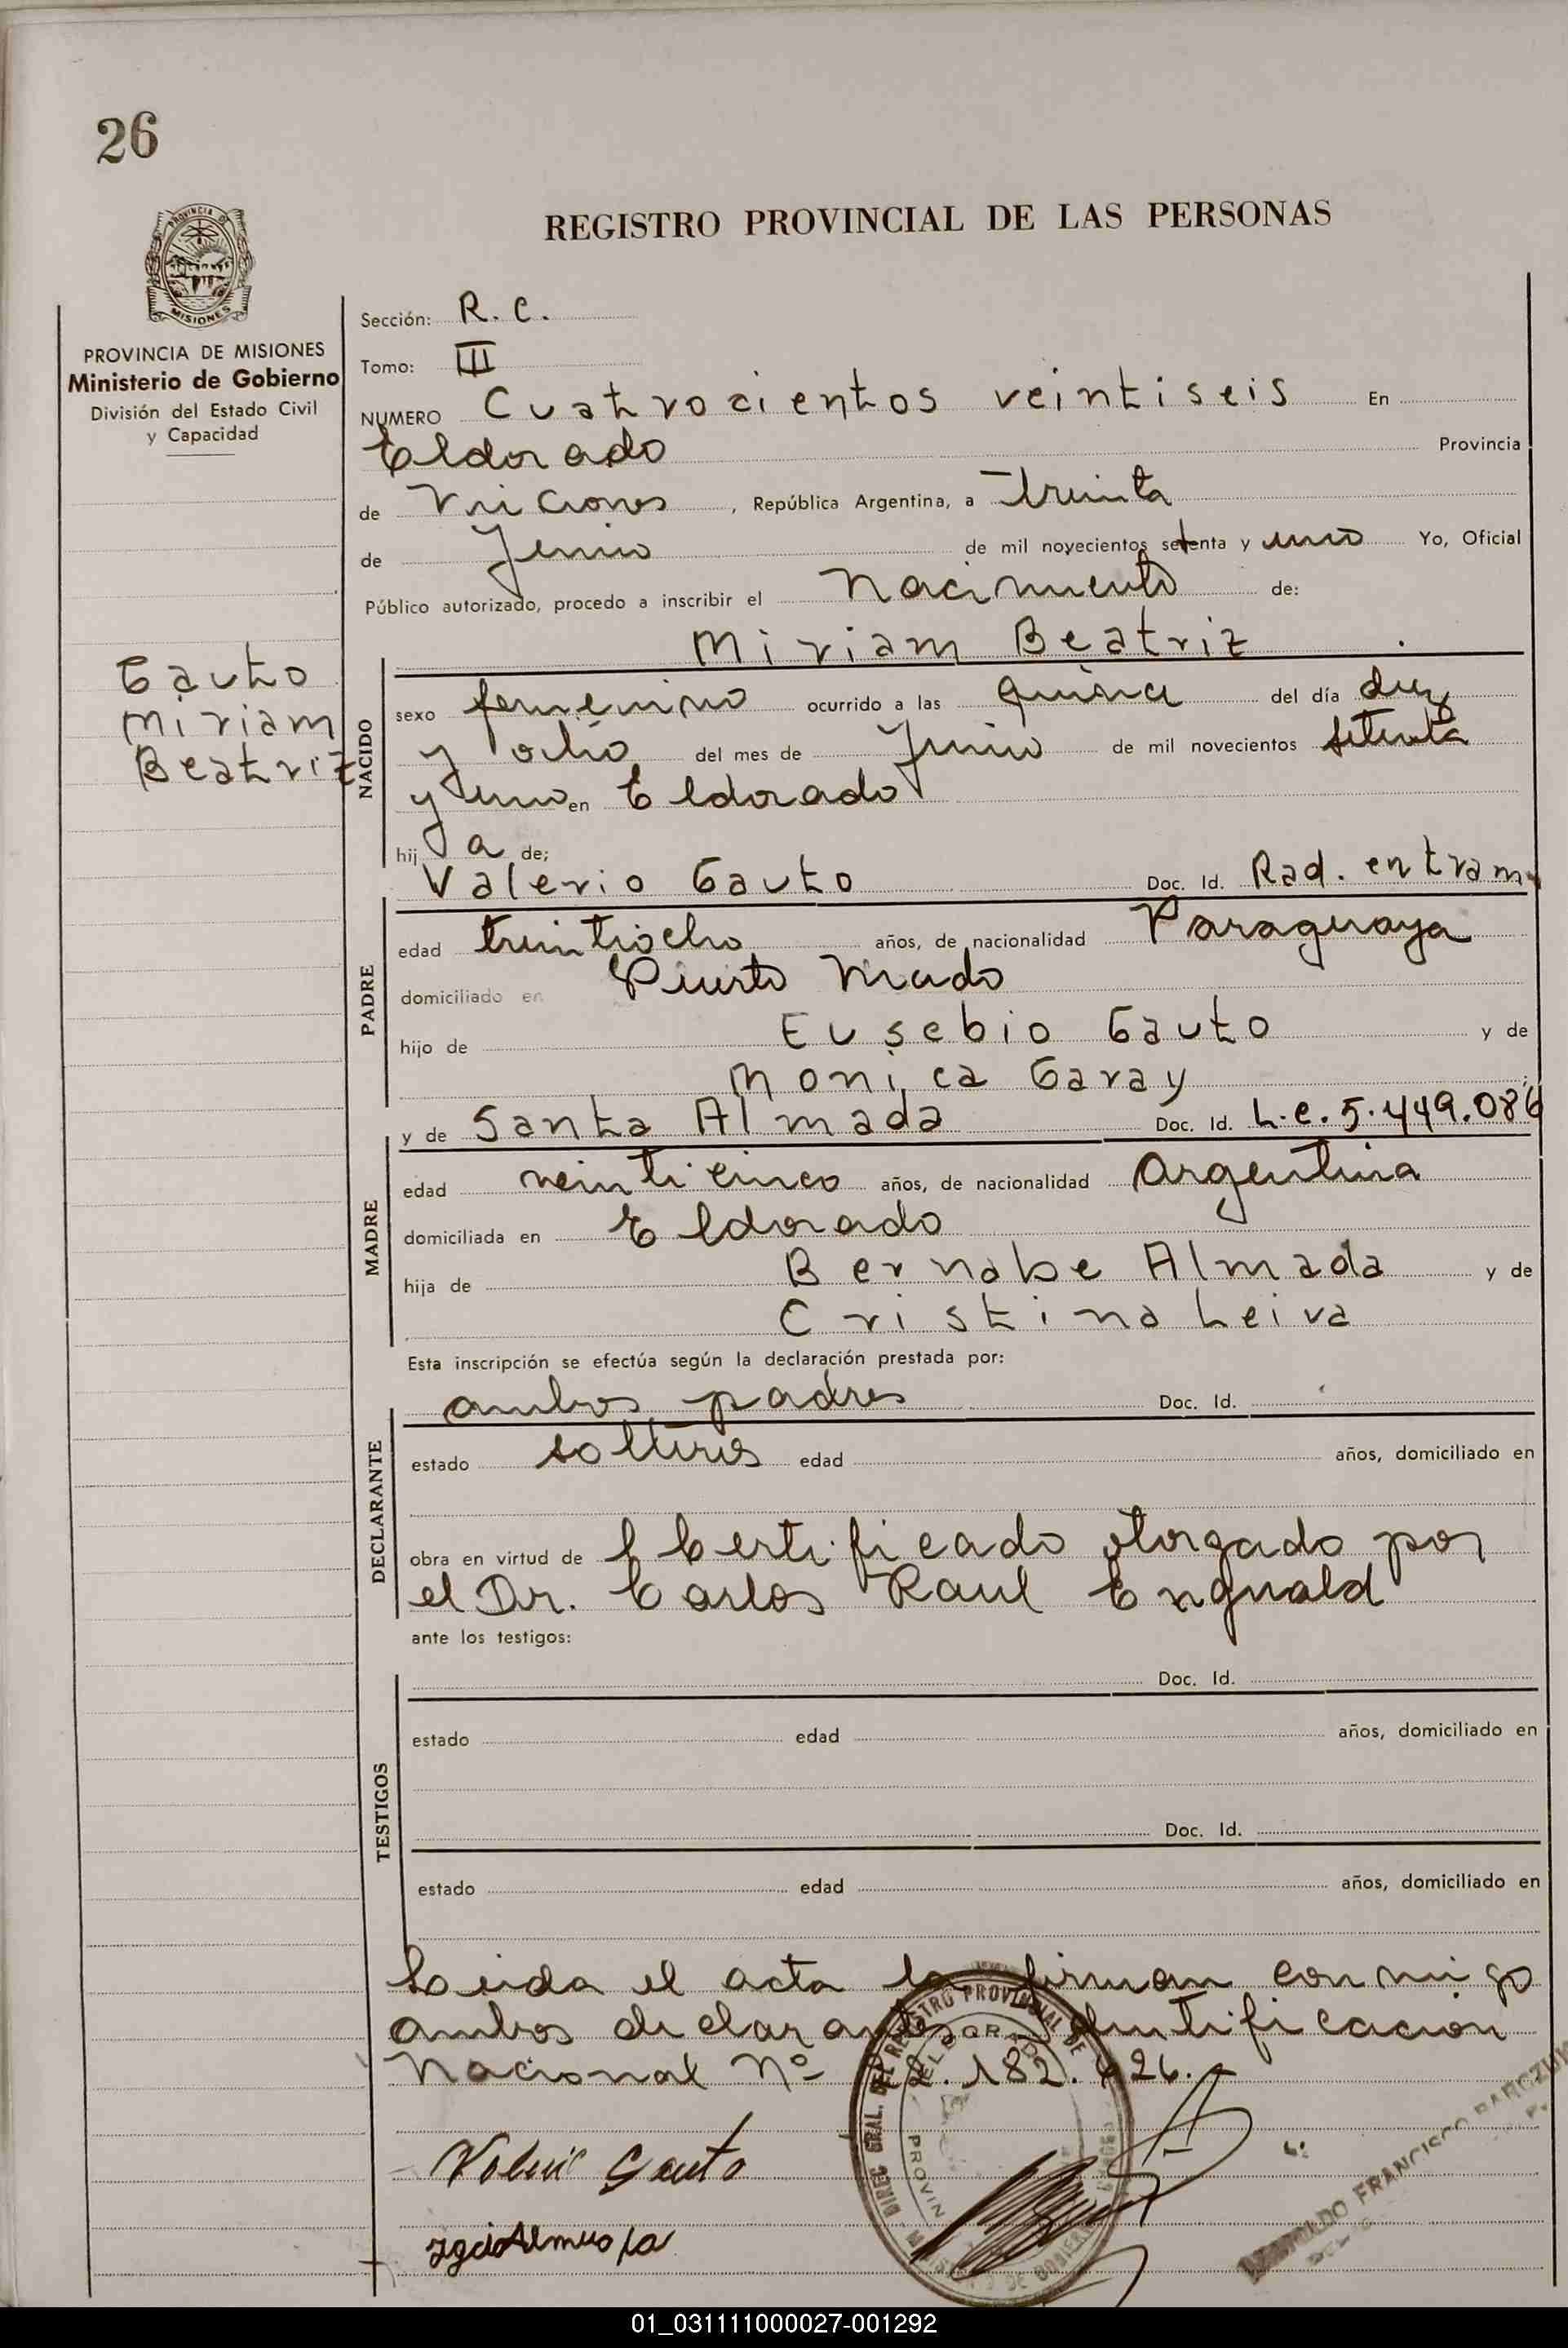 26
REGISTRO PROVINCIAL DE LAS PERSONAS
PROVINCIA DE MISIONES
Ministerio de Gobierno
División del Estado Civil
y Capacidad
Gauto
Miriam
Beatriz
Sección: R. C.
Tomo: III
NUMERO Cuatrocientos veintiseis En
Eldorado Provincia
de Misiones, República Argentina, a treinta
de Junio de mil novecientos setenta y uno Yo, Oficial
Público autorizado, procedo a inscribir el Nacimiento de:
Miriam Beatriz
NACIDO
sexo femenino ocurrido a las quince del día diez
y ocho del mes de Junio de mil novecientos setenta
y uno en Eldorado
hij a de;
Valerio Gauto Doc. Id. Rad. en tram.
PADRE
edad treintiocho años, de nacionalidad Paraguaya
domiciliado en Puerto Mado
hijo de Eusebio Gauto y de
Monica Garay
y de Santa Almada Doc. Id. L.C. 5.449.086
MADRE
edad veinticinco años, de nacionalidad Argentina
domiciliada en Eldorado
hija de Bernabe Almada y de
Cristina Leiva
Esta inscripción se efectúa según la declaración prestada por:
ambos padres Doc. Id.
DECLARANTE
estado solteros edad años, domiciliado en
obra en virtud de Certificado otorgado por
el Dr. Carlos Raul
ante los testigos:
Doc. Id.
TESTIGOS
estado edad años, domiciliado en
Doc. Id.
estado edad años, domiciliado en
Leida el acta la firman conmigo
ambos declarantes Identificacion
Nacional Nº 22.182.426.
Valerio Gauto
DIREC. GRAL. DEL REGISTRO PROVINCIAL DE
FRANCISCO
01_031111000027-001292